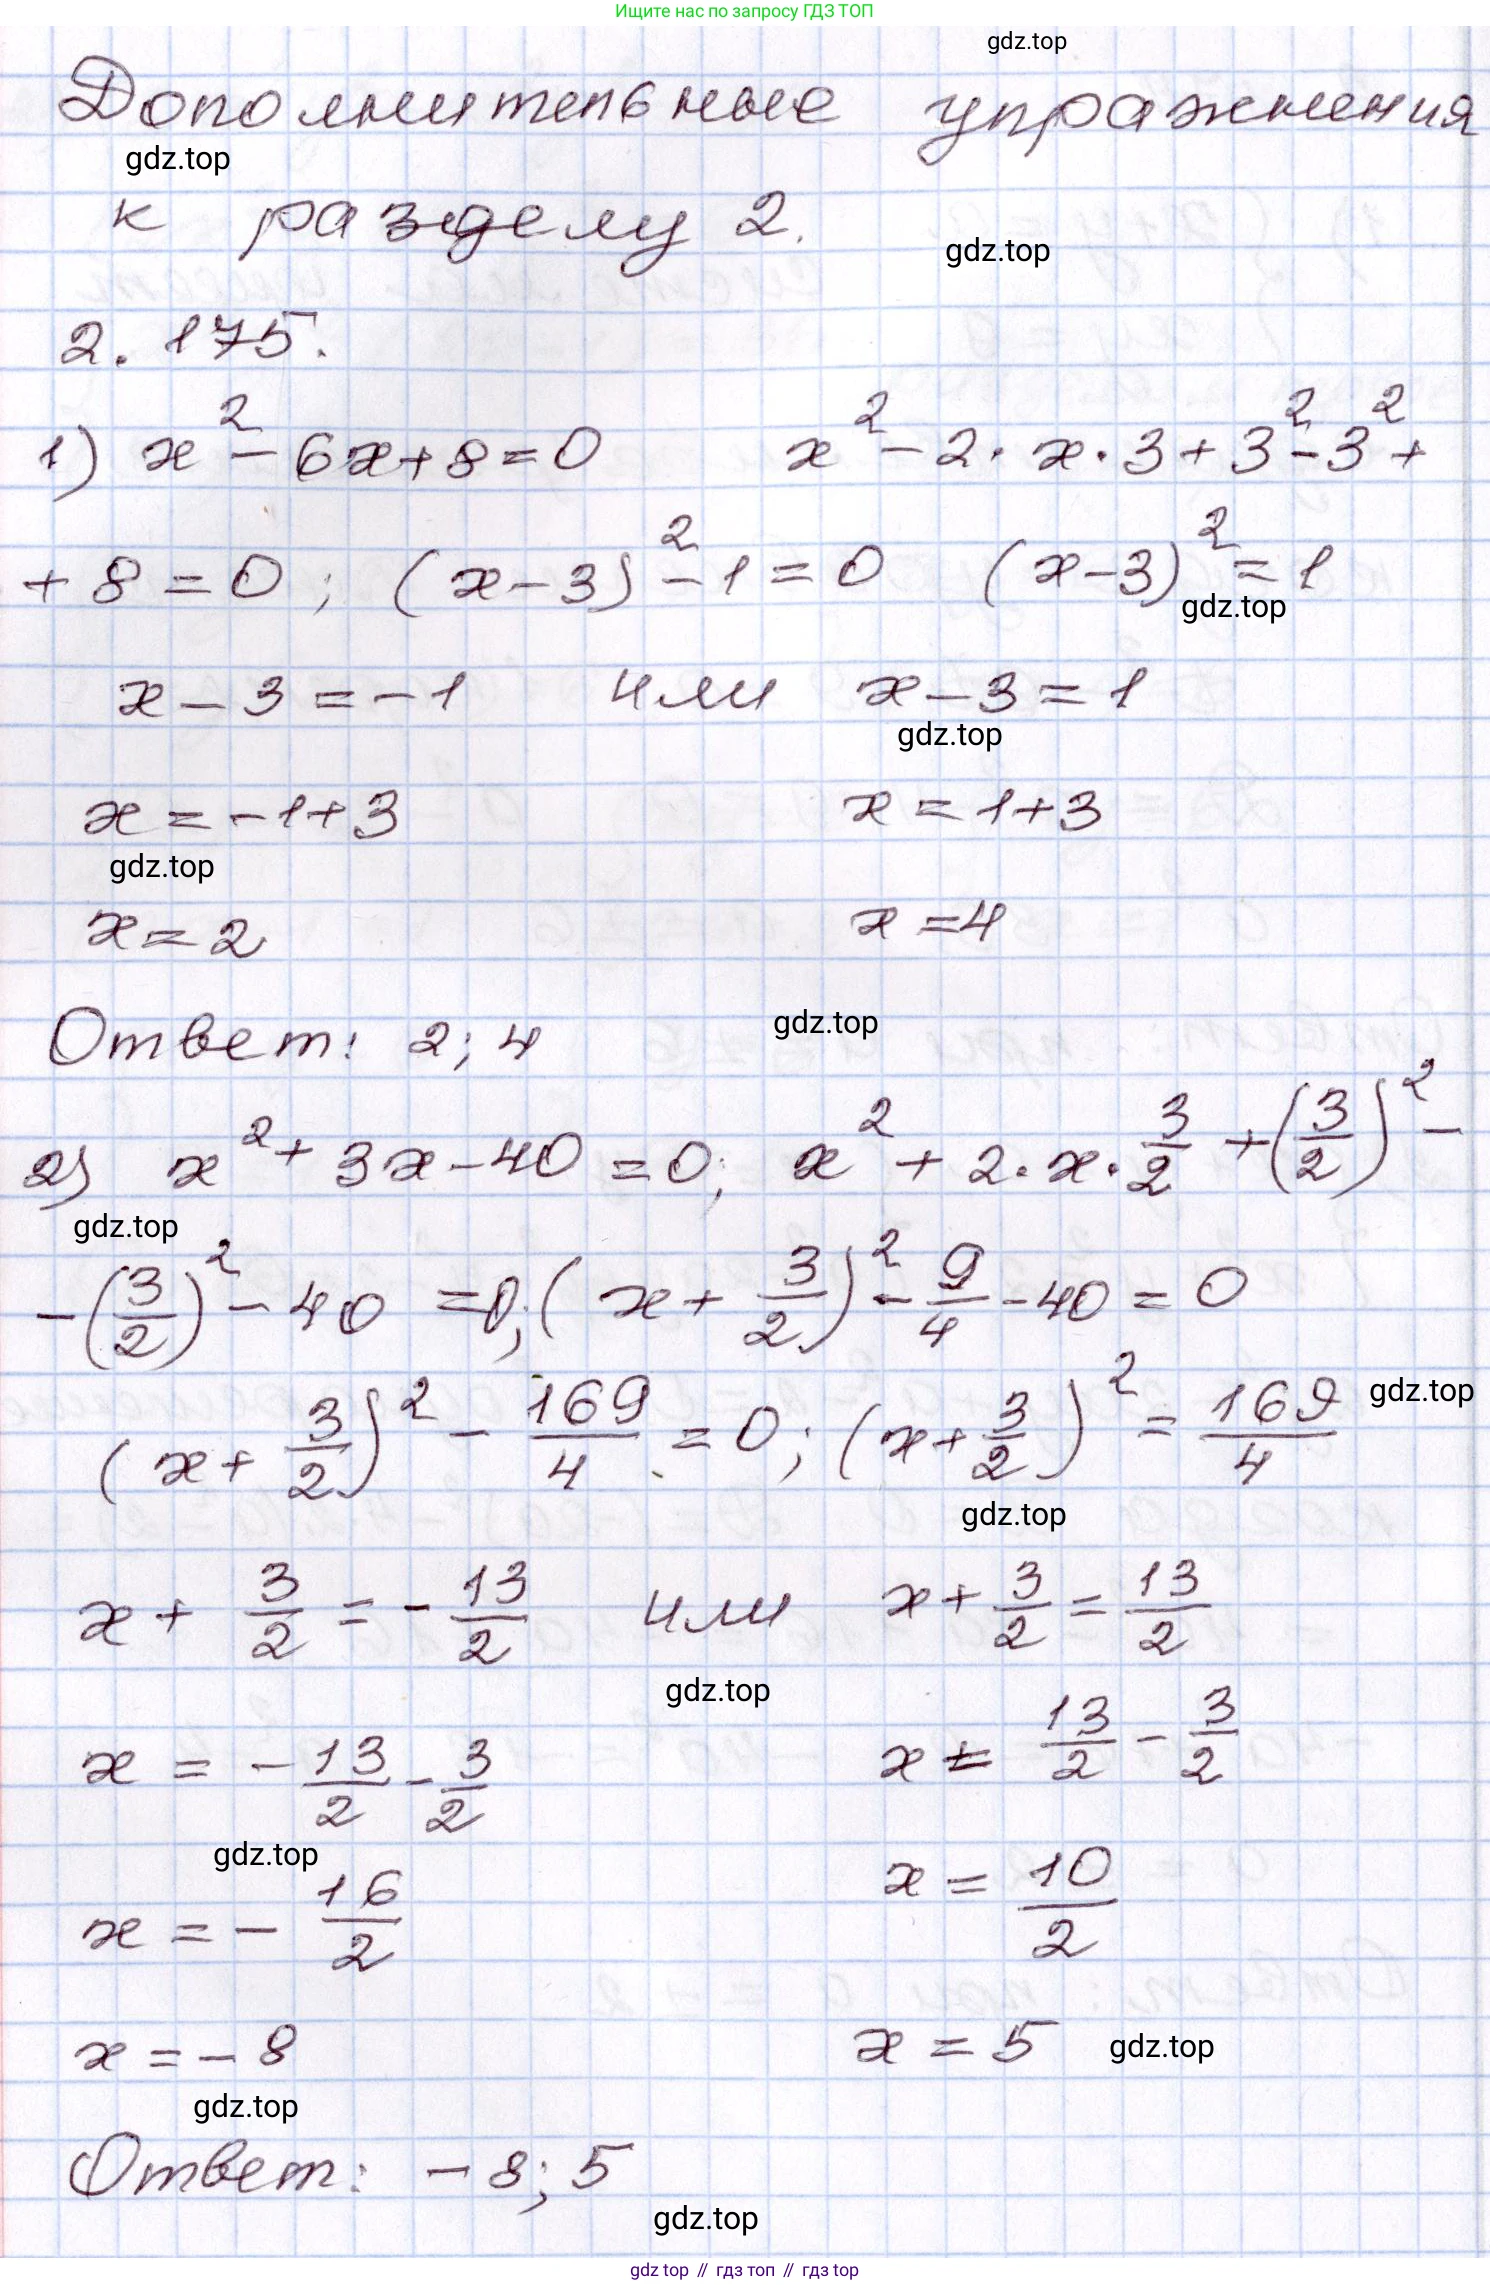 Ищите нас по запросу ГДЗ ТОП
gdz.top
Дополнительные упражнения
gdz.top
к разделу 2.
gdz.top
2.175.
1) x² - 6x + 8 = 0 x² - 2·x·3 + 3² - 3² +
+ 8 = 0; (x - 3)² - 1 = 0 (x - 3)² = 1
gdz.top
x - 3 = -1 или x - 3 = 1
gdz.top
x = -1 + 3 x = 1 + 3
gdz.top
x = 2 x = 4
Ответ: 2; 4 gdz.top
2) x² + 3x - 40 = 0; x² + 2·x·3/2 + (3/2)² -
gdz.top
- (3/2)² - 40 = 0; (x + 3/2)² - 9/4 - 40 = 0
(x + 3/2)² - 169/4 = 0; (x + 3/2)² = 169/4 gdz.top
gdz.top
x + 3/2 = - 13/2 или x + 3/2 = 13/2
gdz.top
x = - 13/2 - 3/2 x = 13/2 - 3/2
gdz.top
x = - 16/2 x = 10/2
x = - 8 x = 5 gdz.top
gdz.top
Ответ: - 8; 5
gdz.top
gdz top // гдз топ // гдз top